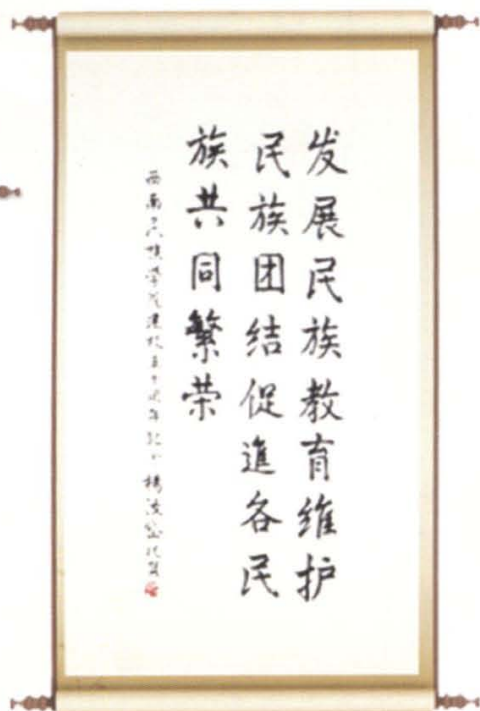 发展民族教育维护
民族团结促進各民
族共同繁荣
西南民族学院建校五十周年